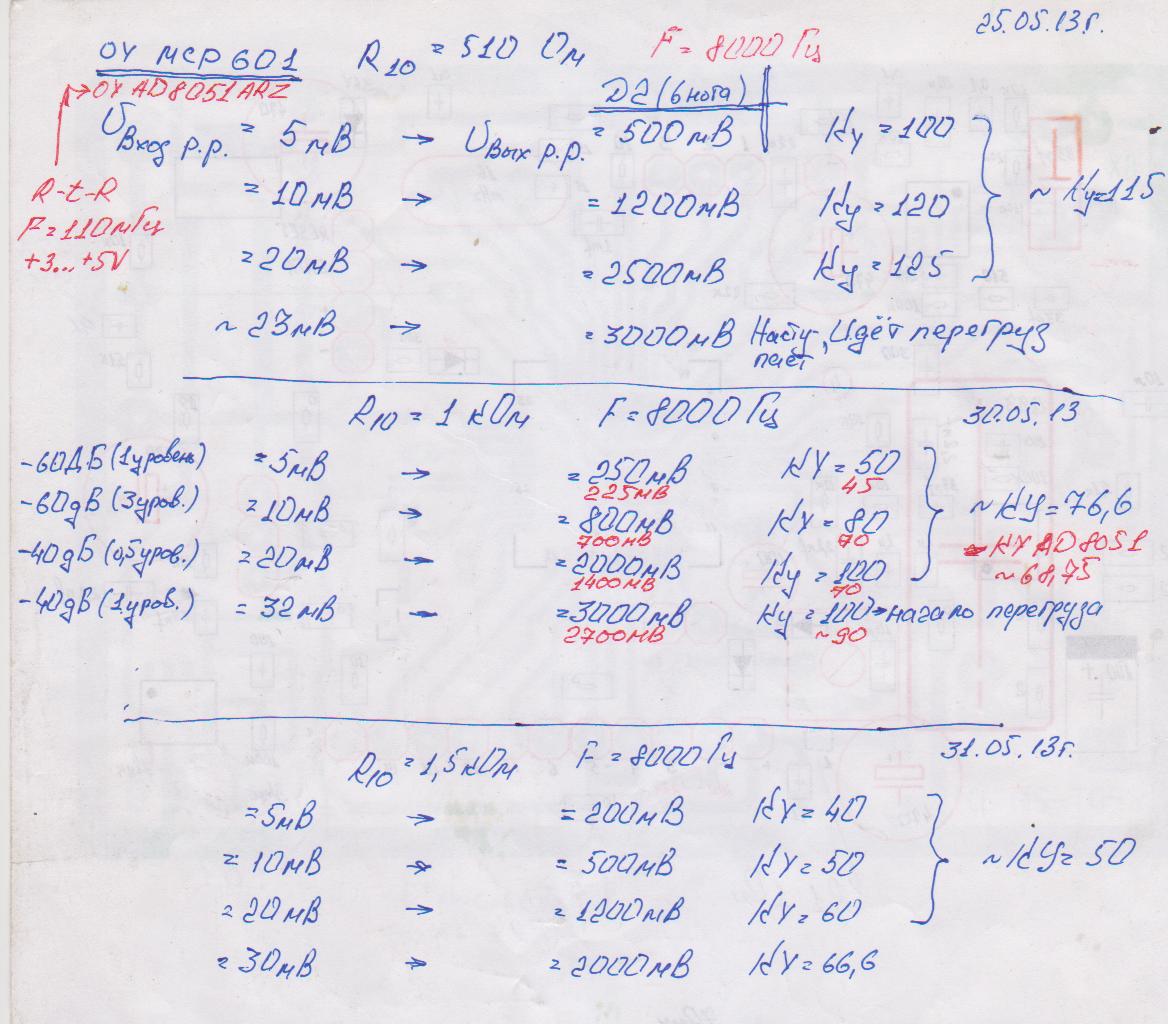 25.05.13г.
ОУ МСР601 R10 = 510 Ом F = 8000 Гц
ОУ AD8051ARZ D2 (6 нога)
Uвход p.p. = 5мВ → Uвых p.p. = 500мВ Ку = 100
R-t-R = 10мВ → = 1200мВ Ку = 120 ~ Ку=115
F=110мГц
+3...+5V = 20мВ → = 2500мВ Ку = 125
~ 23мВ → = 3000мВ Насту-пает, Идёт перегруз
R10 = 1 кОм F = 8000 Гц 30.05.13
-60ДБ (1уровень) = 5мВ → = 250мВ КУ = 50
225мВ 45
-60дВ (3уров.) = 10мВ → = 800мВ КУ = 80 ~ КУ = 76,6
700мВ 70 КУ AD8051
-40дБ (0,5уров.) = 20мВ → = 2000мВ Ку = 100 ~ 68,75
1400мВ 70
-40дВ (1уров.) = 32мВ → = 3000мВ Ку = 100 → начало перегруза
2700мВ ~90
31.05.13г.
R10 = 1,5 кОм F = 8000 Гц
= 5мВ → = 200мВ КУ = 40
= 10мВ → = 500мВ КУ = 50 ~ КУ = 50
= 20мВ → = 1200мВ КУ = 60
= 30мВ → = 2000мВ КУ = 66,6